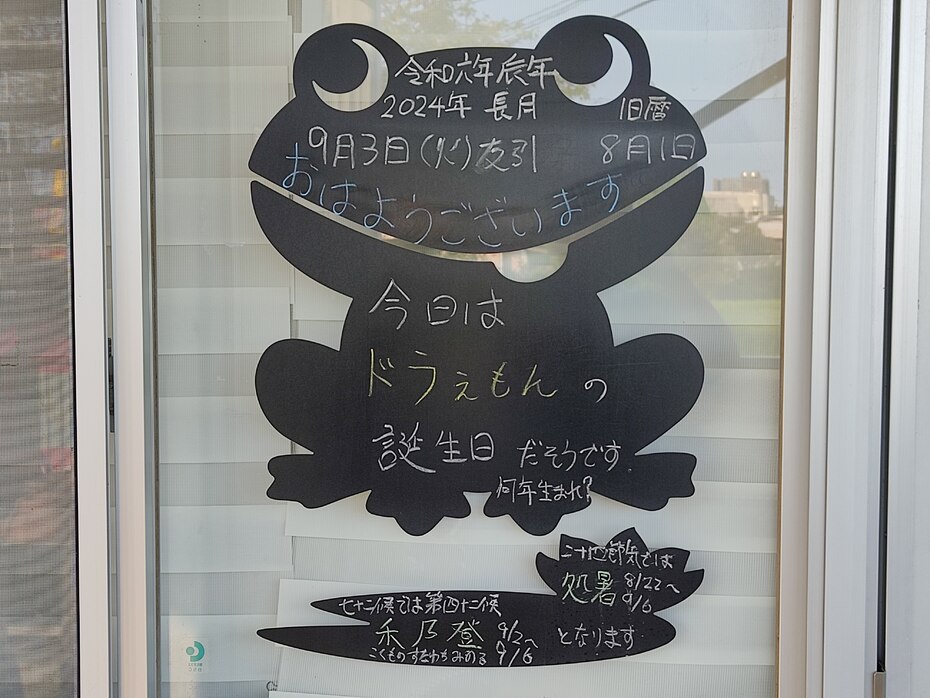 令和六年辰年
2024年 長月 旧暦
9月3日(火)友引 8月1日
おはようございます
今日は
ドラえもんの
誕生日 だそうです
何年生まれ?
二十四節気では
処暑 8/22〜
9/6
七十二候では第四十二候
禾乃登 9/2〜 となります
こくものすなわちみのる 9/6